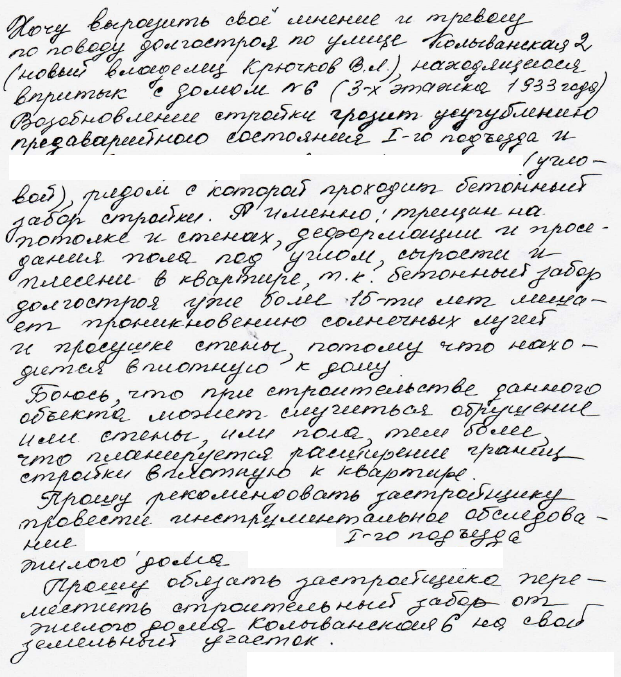 Хочу выразить своё мнение и тревогу
по поводу долгостроя по улице Колыванская 2
(новый владелец Крючков В.А.), находящегося
впритык с домом №6 (3-х этажка 1933 года)
Возобновление стройки грозит усугублению
предаварийного состояния I-го подъезда и
(угло-
вой), рядом с которой проходит бетонный
забор стройки. А именно: трещин на
потолке и стенах, деформации и просе-
дания пола под углом, сырости и
плесени в квартире, т.к. бетонный забор
долгостроя уже более 15-ти лет меша-
ет проникновению солнечных лучей
и просушке стены, потому что нахо-
дится вплотную к дому.
Боюсь, что при строительстве данного
объекта может случиться обрушение
или стены, или пола, тем более,
что планируется расширение границ
стройки вплотную к квартире.
Прошу рекомендовать застройщику
провести инструментальное обследова-
ние I-го подъезда
жилого дома
Прошу обязать застройщика пере-
местить строительный забор от
жилого дома Колыванская 6 на свой
земельный участок.